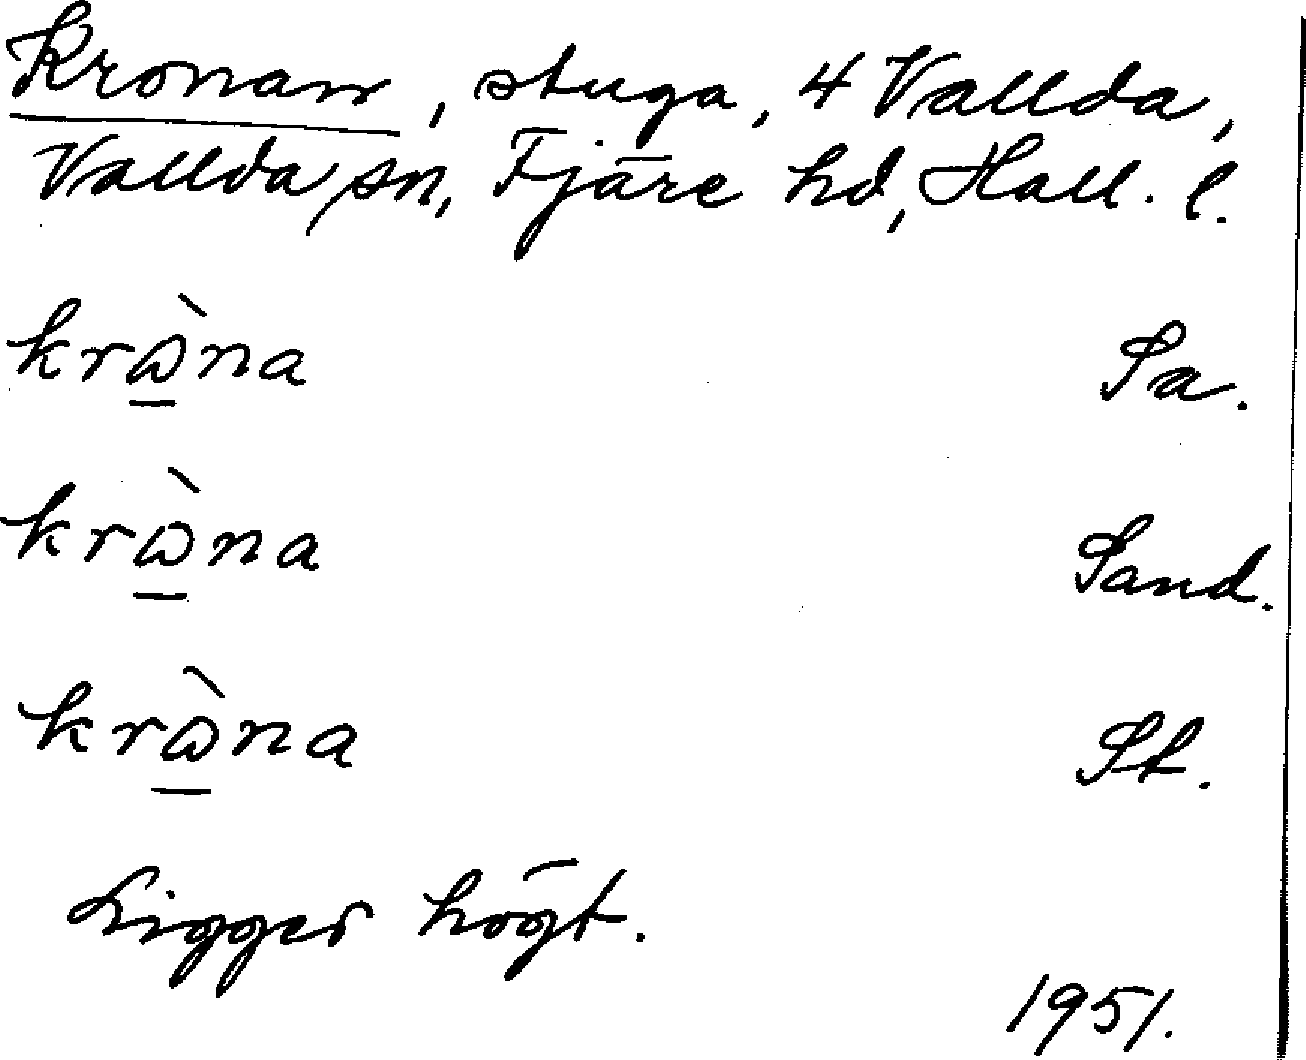 Kronan, stuga, 4 Vallda,
Vallda sn, Fjäre hd, Hall. l.
krὼ̲na Sa.
krὼ̲na Sand.
krὼ̲na St.
Ligger högt.
1951.